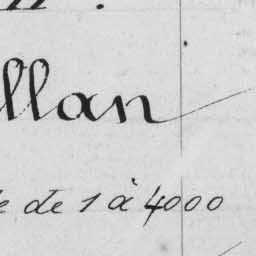 llan
de 1 à 4000